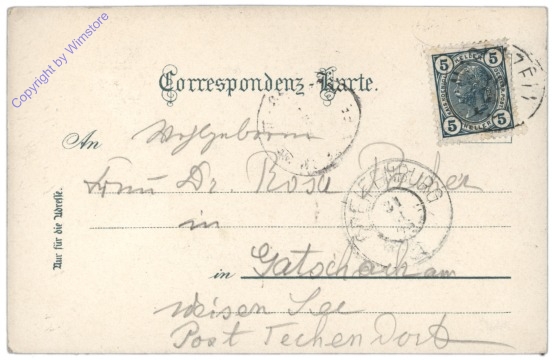 Copyright by Wimstore
5 HELLER 5
5 5
Correspondenz-Karte.
An Wohlgeboren
Frau Dr. Rosa
in
in Gatschach am
Weisen See
Post Techendorf
Nur für die Adresse.